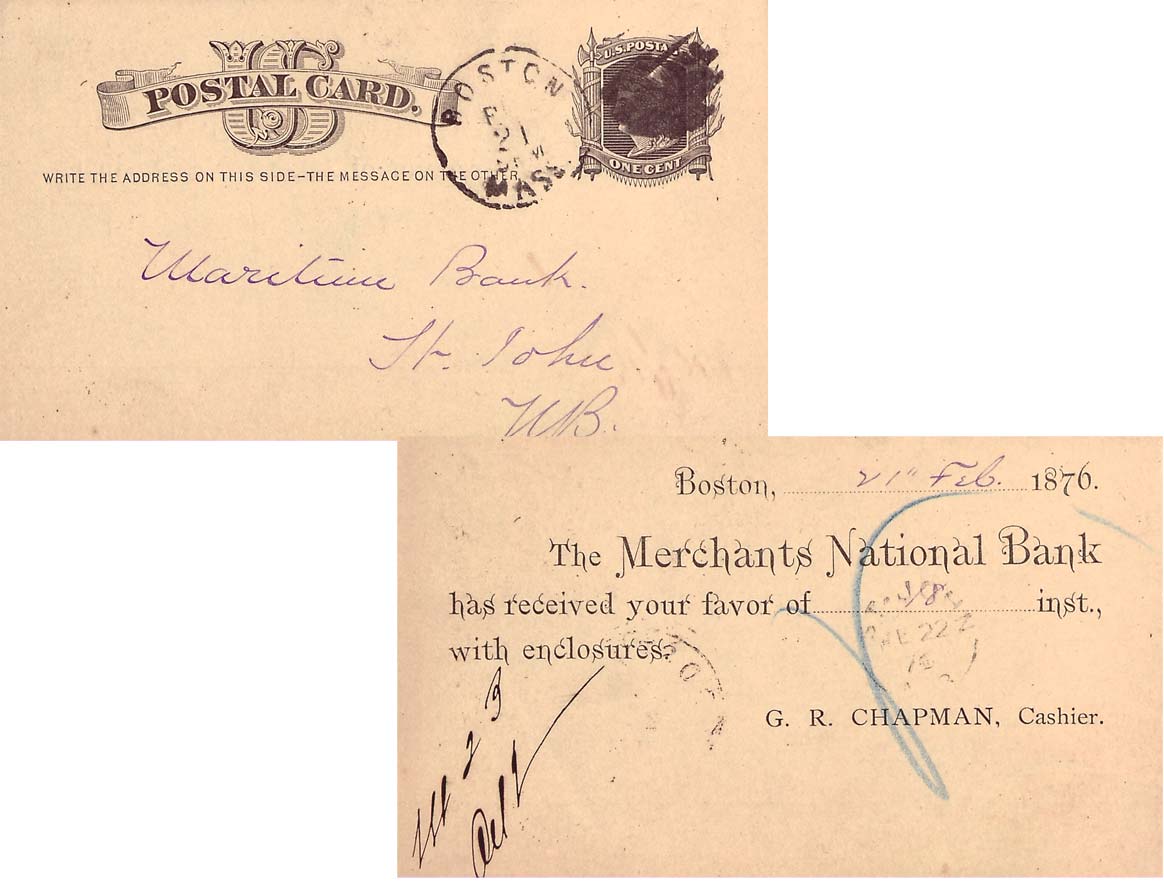 US
POSTAL CARD.
U.S. POSTA
ONE CENT
BOSTON
21
MASS
WRITE THE ADDRESS ON THIS SIDE–THE MESSAGE ON THE OTHER
Maritime Bank.
St. John
NB.
Boston, 21st Feb. 1876.
The Merchants National Bank
has received your favor of 18 inst.,
with enclosures.
FE 22
G. R. CHAPMAN, Cashier.